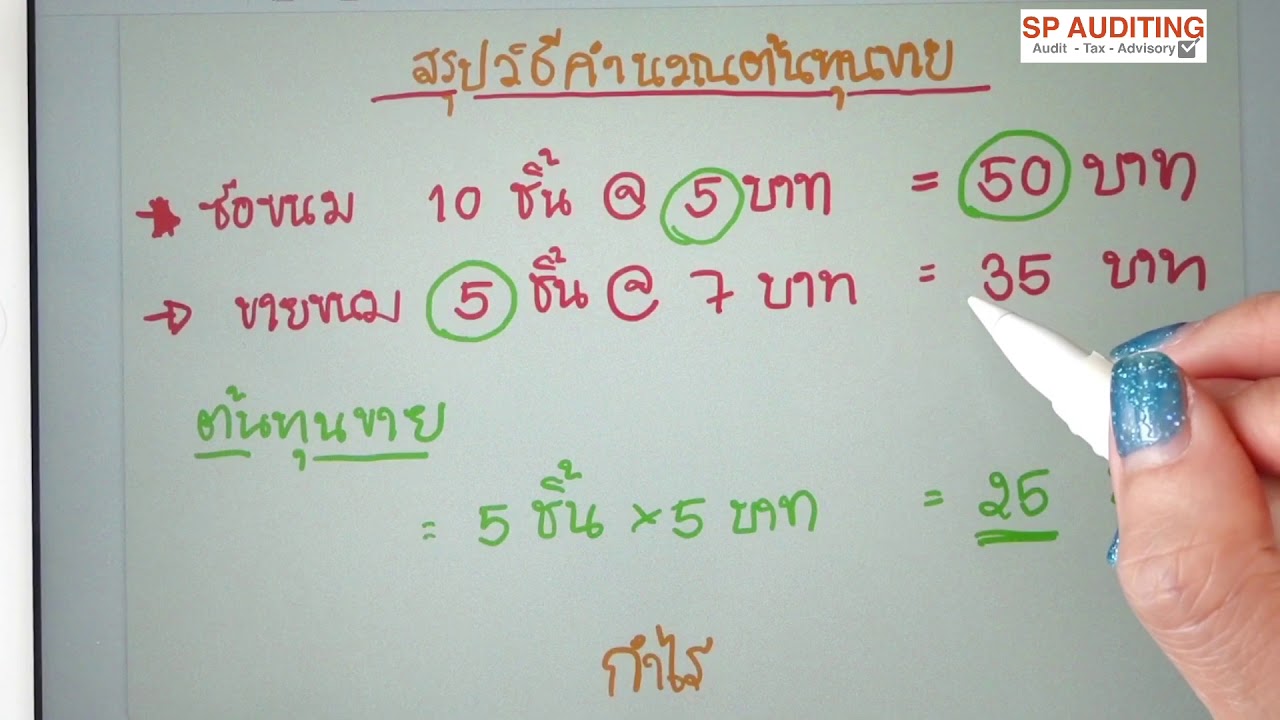 SP AUDITING
Audit - Tax - Advisory
สรุปวิธีคำนวณต้นทุนขาย
ซื้อขนม 10 ชิ้น @ 5 บาท = 50 บาท
ขายขนม 5 ชิ้น @ 7 บาท = 35 บาท
ต้นทุนขาย
= 5 ชิ้น × 5 บาท = 25
กำไร